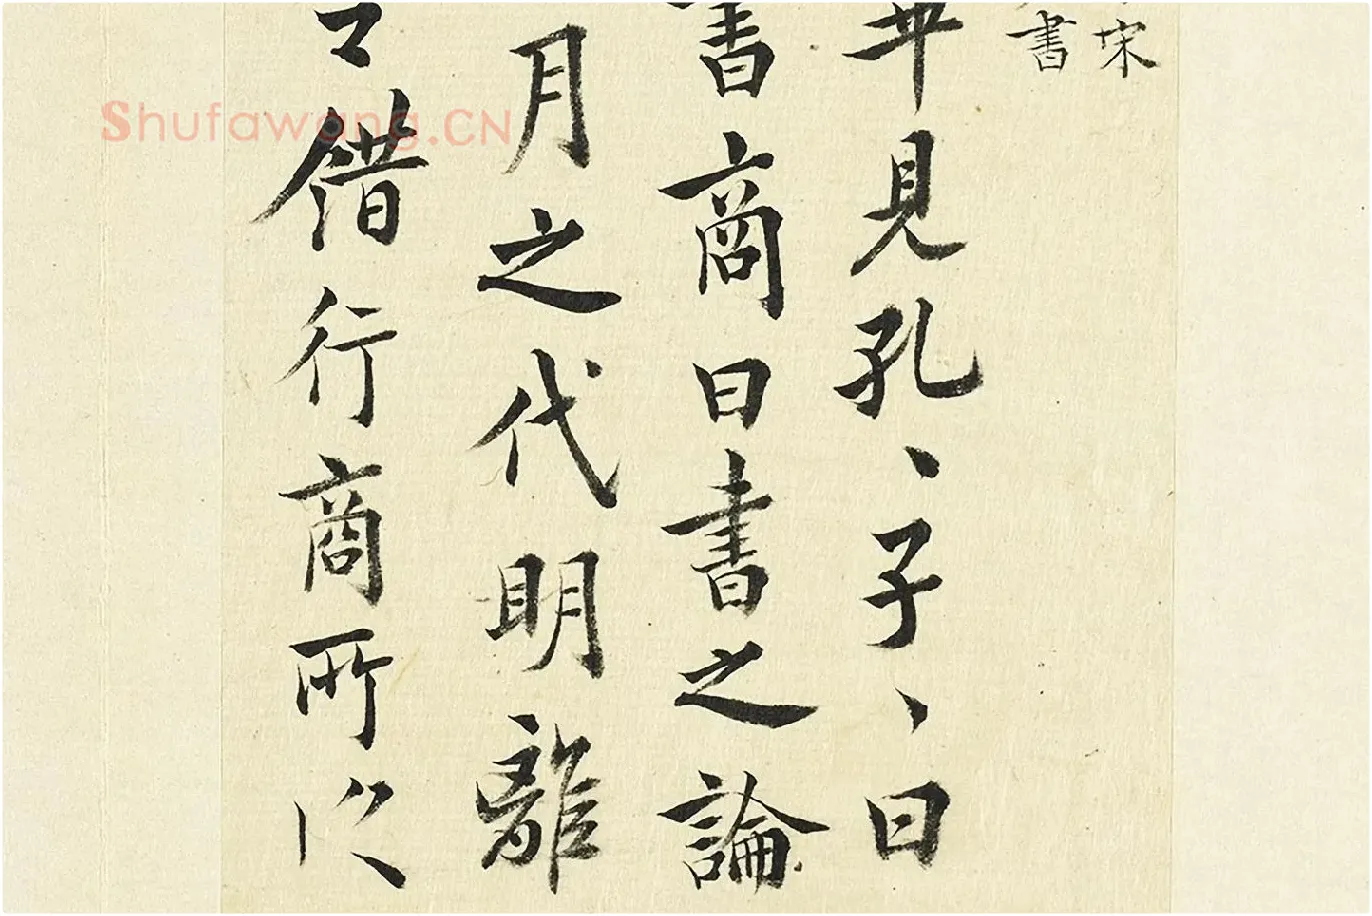 宋
書
見孔、子、曰
書商曰書之論
月之代明離
錯行商所
Shufawang.CN